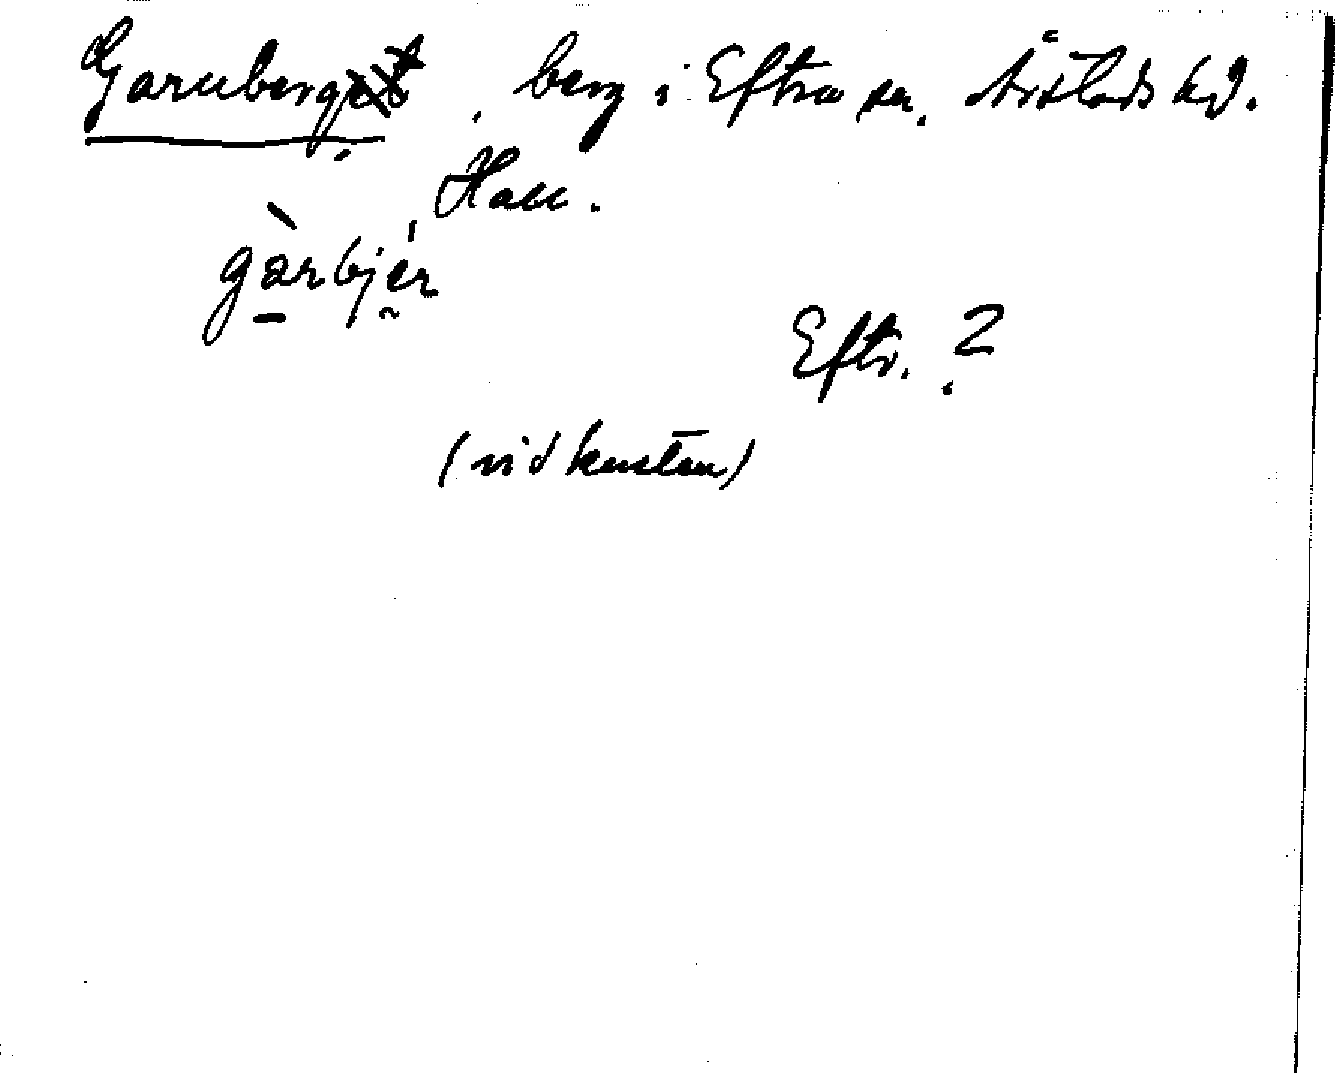 Garnberg, berg i Eftra sn, Årstads hd.
Hall.
gàrbjér
Eftr. 2
(vid kusten)